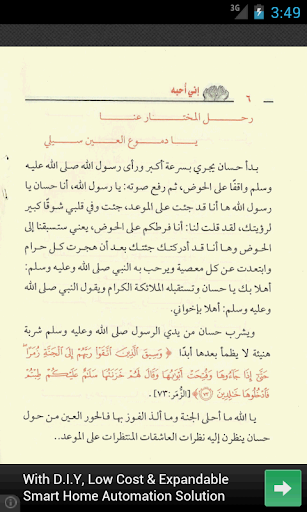 3G 3:49
٦ إني أحبه
رحل المختار عنا
يا دموع العين سيلي
بدأ حسان يجري بسرعة أكبر ورأى رسول الله صلى الله عليه
وسلم واقفًا على الحوض، ثم رفع صوته: يا رسول الله، أنا حسان يا
رسول الله ها أنا قد جئت على الموعد، جئت وفي قلبي شوقًا كبير
لرؤيتك، لقد قلت لنا: أنا فرطكم على الحوض، يعني سنسبقنا إلى
الحوض وها أنا قد أدركتك جئتك بعد أن هجرت كل حرام
وابتعدت عن كل معصية ويرحب به النبي صلى الله عليه وسلم:
أهلا بك يا حسان وتستقبله الملائكة الكرام ويقول النبي صلى الله
عليه وسلم: أهلا بإخواني.
ويشرب حسان من يدي الرسول صلى الله عليه وسلم شربة
هنيئة لا يظمأ بعدها أبدًا ﴿ وَسِيقَ الَّذِينَ اتَّقَوْا رَبَّهُمْ إِلَى الْجَنَّةِ زُمَرًا
حَتَّى إِذَا جَاءُوهَا وَفُتِحَتْ أَبْوَابُهَا وَقَالَ لَهُمْ خَزَنَتُهَا سَلَامٌ عَلَيْكُمْ طِبْتُمْ
فَادْخُلُوهَا خَالِدِينَ ﴿٧٣﴾ ﴾ [الزُّمَر: ٧٣].
يا الله ما أحلى الجنة وما ألذ الفوز بها فالحور العين من حول
حسان ينظرن إليه نظرات العاشقات المنتظرات على الموعد..
With D.I.Y, Low Cost & Expandable
Smart Home Automation Solution